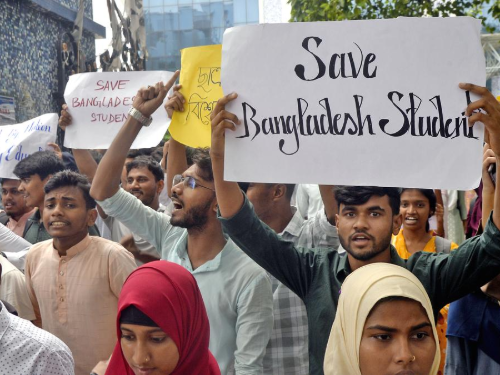 SAVE
BANGLADESH
STUDENT
ছাত্র
Save
Bangladesh Student